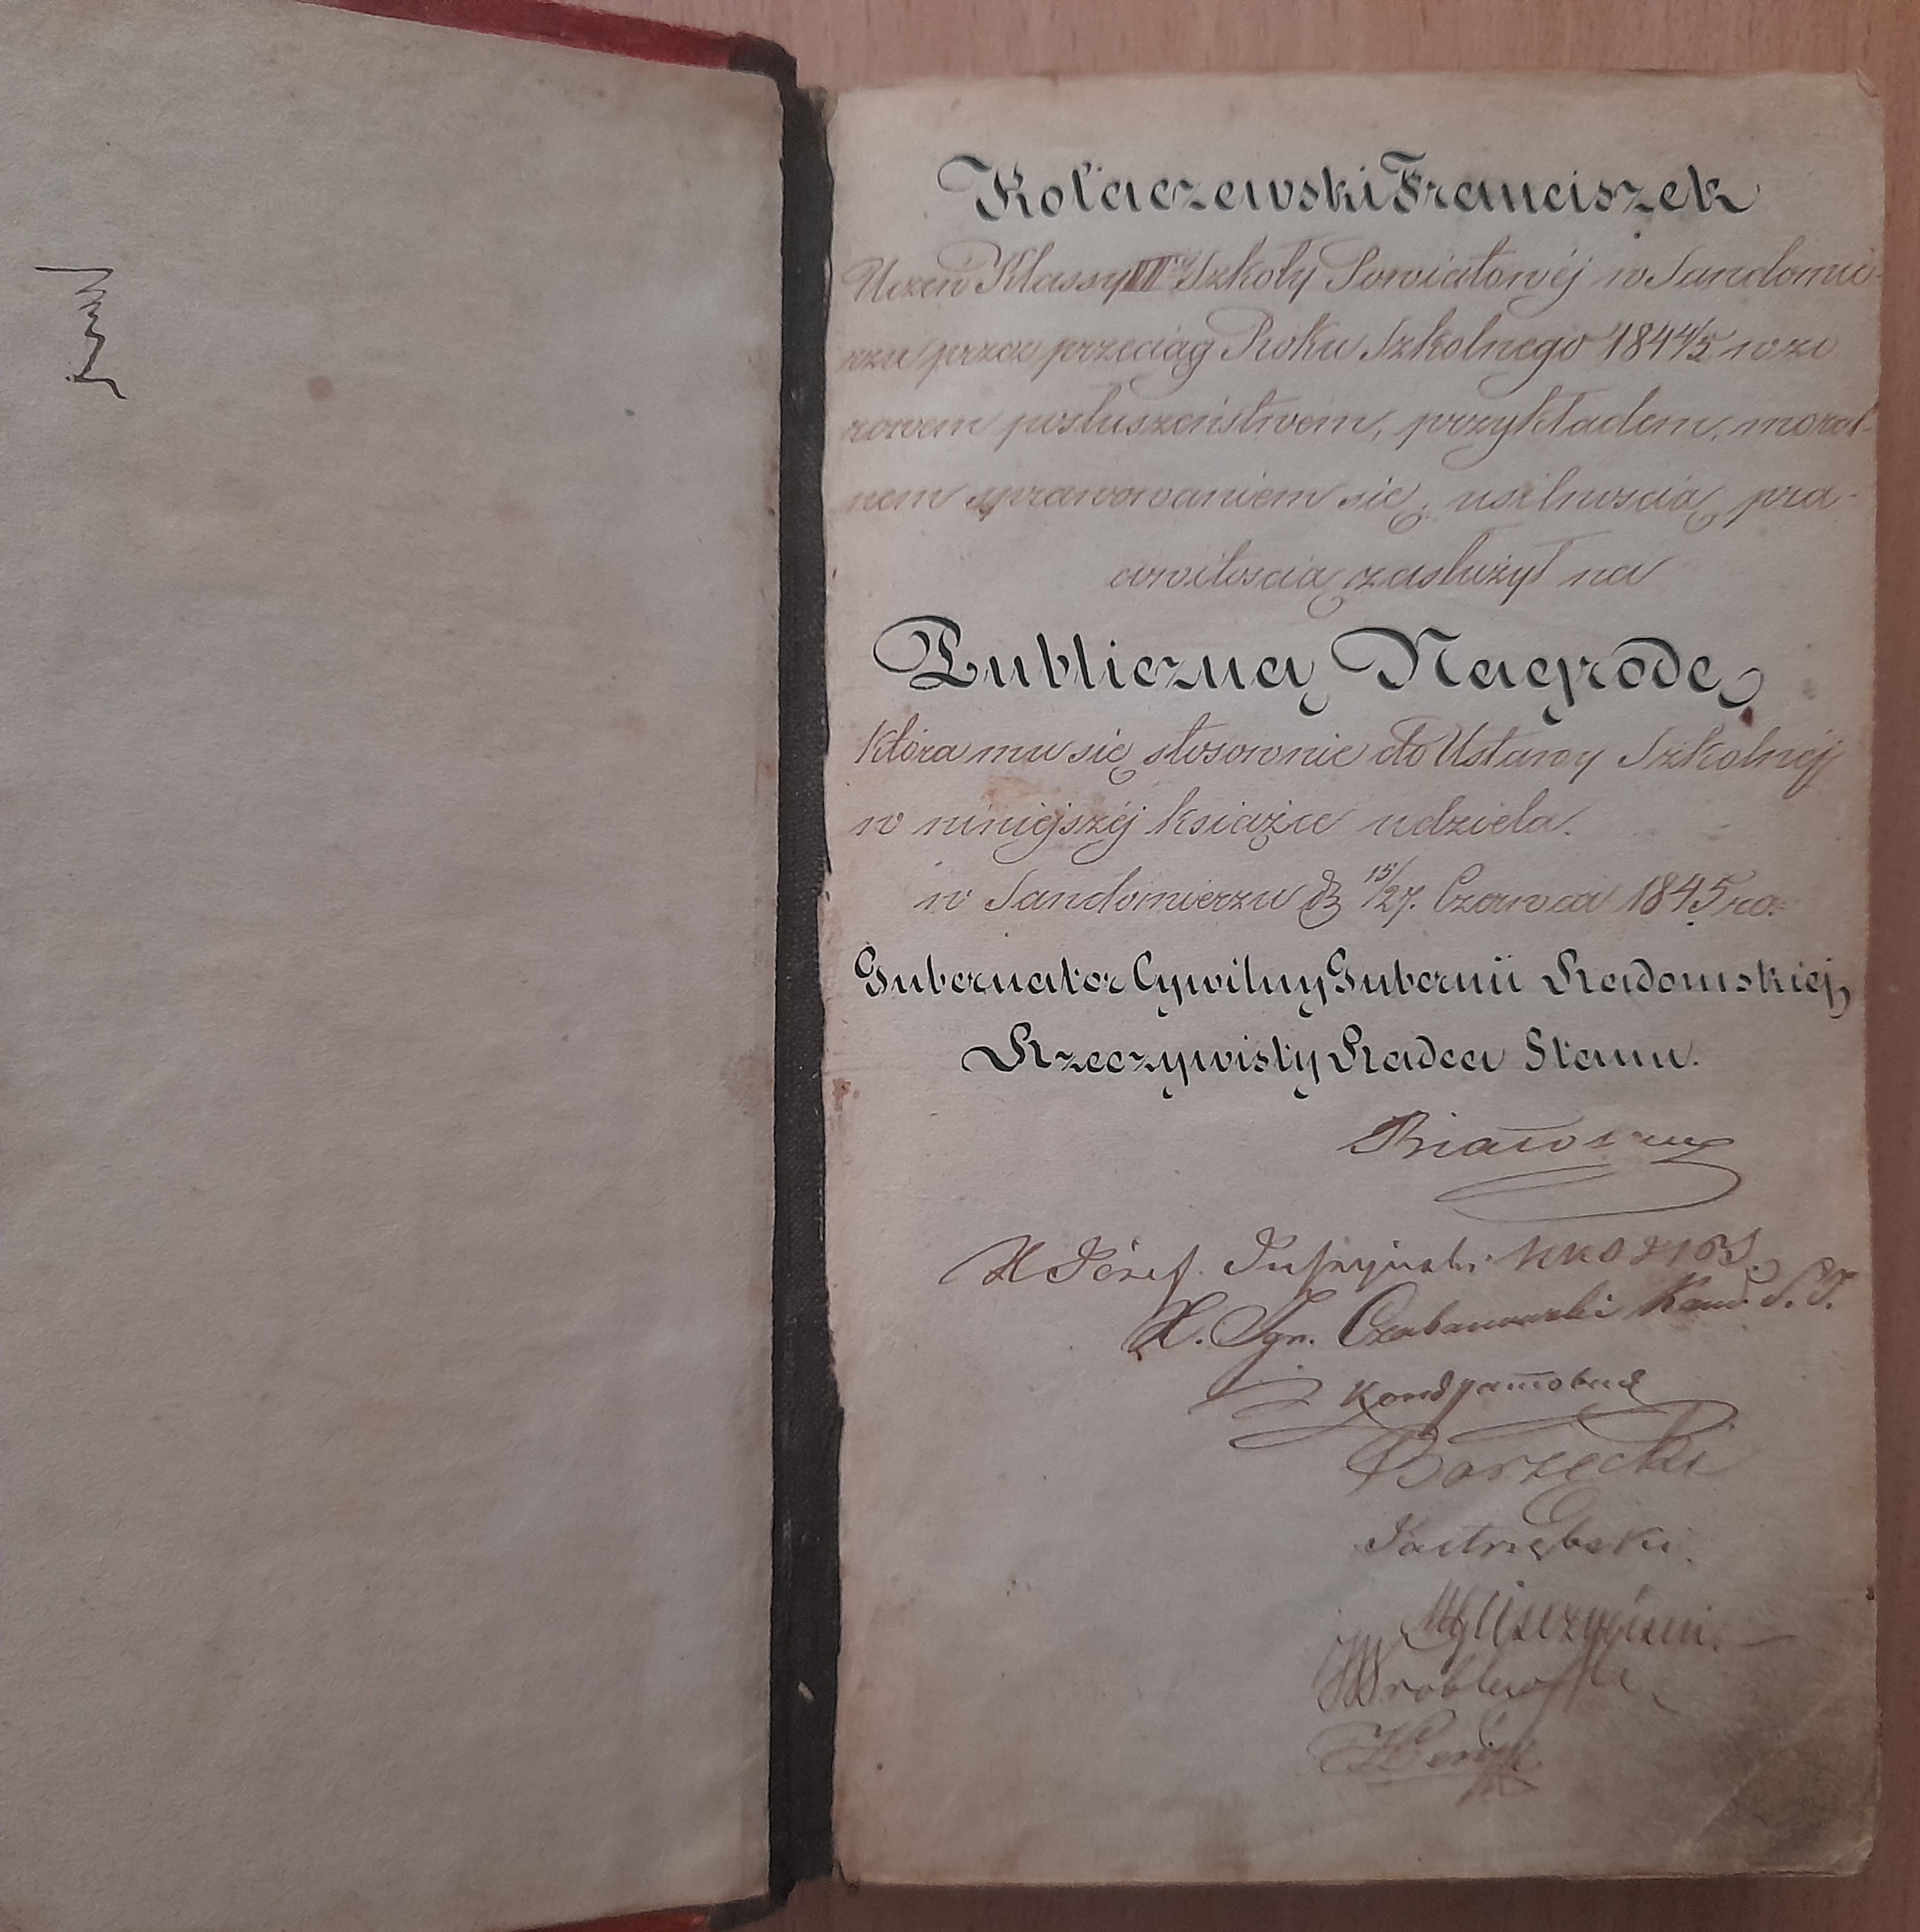 Kołaczewski Franciszek
Uczeń Klassy III Szkoły Powiatowéj w Sandomie-
rzu przez przeciąg Roku Szkolnego 1844/5 wzo
rowem posłuszeństwem, przykładem, moral-
nem sprawowaniem się, usilnością, pra-
cowitością zasłużył na
Publiczną Nagrodę
która mu się stosownie do Ustawy Szkolnéj
w niniejszéj książce udziela.
w Sandomierzu d. 15/27. Czerwca 1845 ro.
Gubernator Cywilny Gubernii Radomskiej,
Rzeczywisty Radca Stanu.
Białoskur
X Józef
X. Ign. Czabanowski Kand. S. T.
Кондратовичъ
Borzęcki
Jastrzębski.
Myliszyński.
Wróblewski